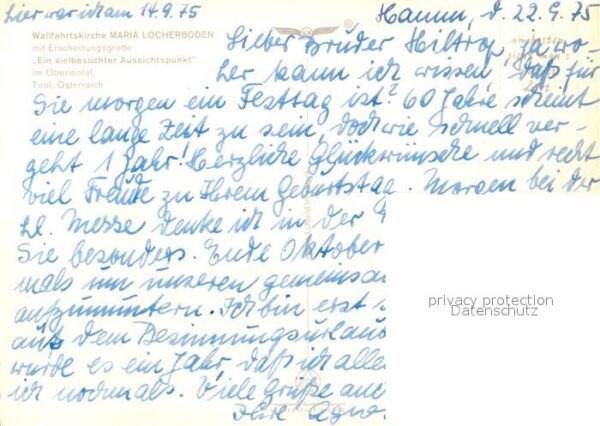 hier war ich am 14.9.75
Hamm, d. 22.9.75
Wallfahrtskirche MARIA LOCHERBODEN
mit Erscheinungsgrotte
"Ein vielbesuchter Aussichtspunkt"
im Oberinntal,
Tirol, Österreich
Lieber Bruder Hiltrop, ja wo-
her kann ich wissen, daß für
Sie morgen ein Festtag ist? 60 Jahre scheint
eine lange Zeit zu sein, doch wie schnell ver-
geht 1 Jahr! Herzliche Glückwünsche und recht
viel Freude zu Ihrem Geburtstag. Morgen bei der
hl. Messe denke ich in der
Sie besonders. Ende Oktober
mals um unseren gemeinsa
aufzumuntern. Ich bin erst
aus dem Besinnungsurlaub
wurde es ein Jahr, daß ich alle
ich nochmals. Viele Grüße auc
Ihre
privacy protection
Datenschutz